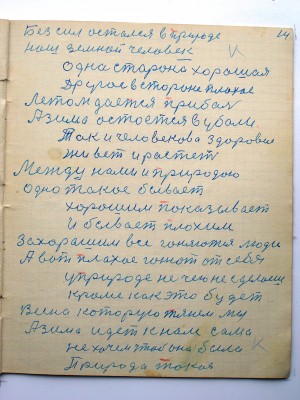 14
Без сил остался в природе
наш земной человек
Одна сторона хорошая
Другое в стороне плохое
Летом дается прибыл
А зима остоется убыли
Так и человекова здоровья
живет и растет
Между нами и природою
Одно такое бывает
хорошим показывает
И бывает плохим
За хорашим все гоняются люди
А вот плахое гонют от себя
у природе не чем не сделаеш
Кроме как это будет
Вина которую тянем мы
А зима идет к нам сама
не хочем чтоб она была
Природа такая